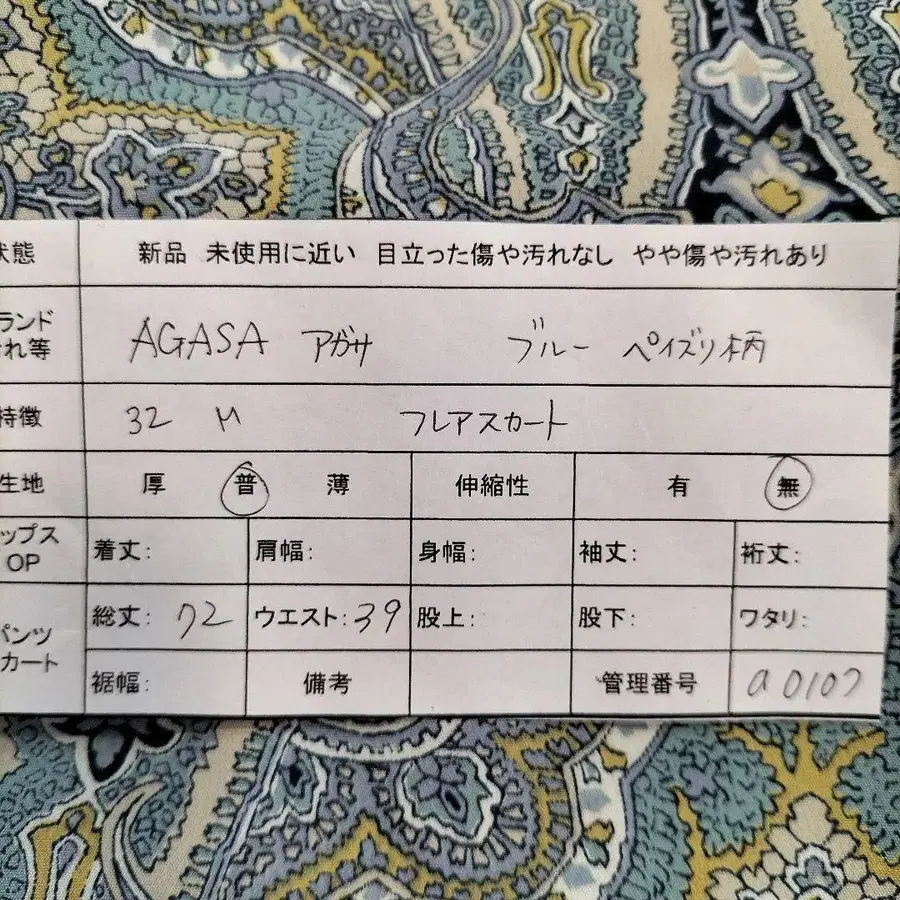 状態 新品 未使用に近い 目立った傷や汚れなし やや傷や汚れあり
ランド れ等 AGASA アガサ ブルー ペイズリ柄
特徴 32 M フレアスカート
生地 厚 普 薄 伸縮性 有 無
ップス OP 着丈: 肩幅: 身幅: 袖丈: 裄丈:
パンツ カート 総丈: 72 ウエスト: 39 股上: 股下: ワタリ:
裾幅: 備考 管理番号 a0107